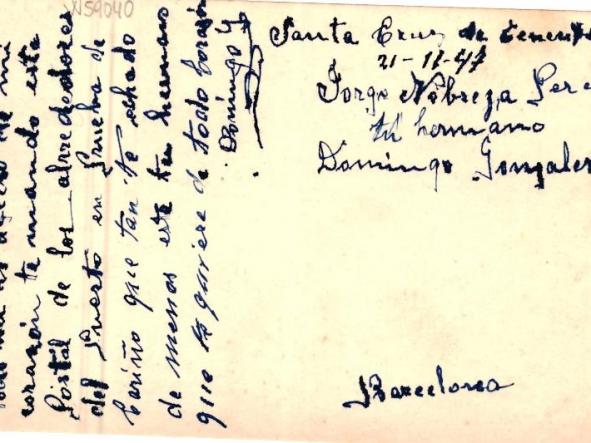 W59040
Santa Cruz de Tenerife
21-11-47
Jorge Nóbrega Pere
tú hermano
Domingo Gonzales
Barcelona
de mi
corazón te mando esta
Postal de los alrrededores
del Puerto en Prueba de
Cariño que tan te echado
de menos este tu hermano
que te quiere de todo Corazón
Domingo G